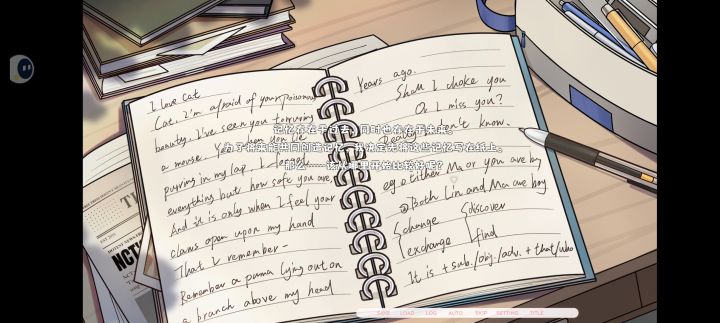 I love cat
Cat, I'm afraid of your poisonous
beauty. I've seen you torturing
a mouse. when you lie
purring in my lap, I
everything but how soft you are.
And it is only when I feel your
claws open upon my hand
That I remember-
Remember a puma lying out on
a branch above my head
Years ago.
Shall I choke you
Or I miss you?
Really don't know.
eg ① either Ma or you are boy
② Both Lin and Ma are boy
change
exchange
discover
find
It is + sub./obj./adv. + that/who
记忆存在于过去，同时也存在于未来。
为了将来能共同创造记忆，我决定先将这些记忆写在纸上。
那么……该从哪里开始比较好呢？
NCT
SAVE LOAD LOG AUTO SKIP SETTING TITLE